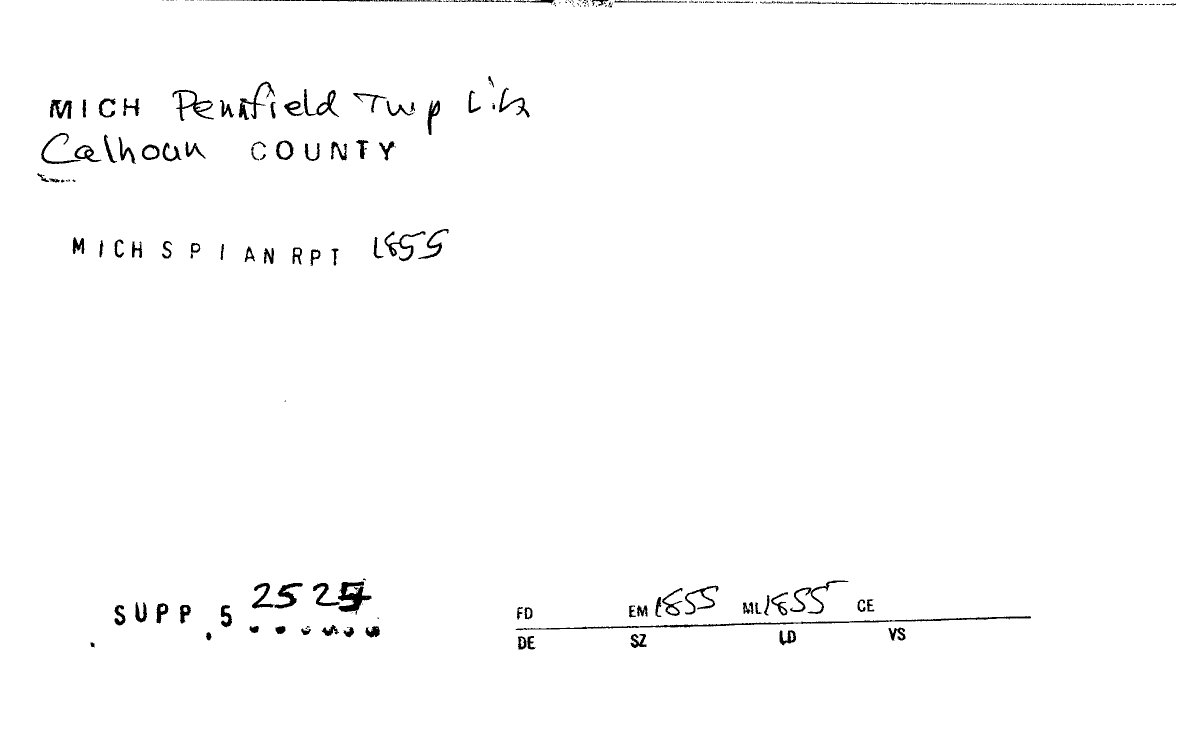 MICH Pennfield Twp Lib
Calhoun COUNTY
MICH SPI AN RPT 1855
SUPP . 5 252
FD EM 1855 ML 1855 CE
DE SZ LD VS